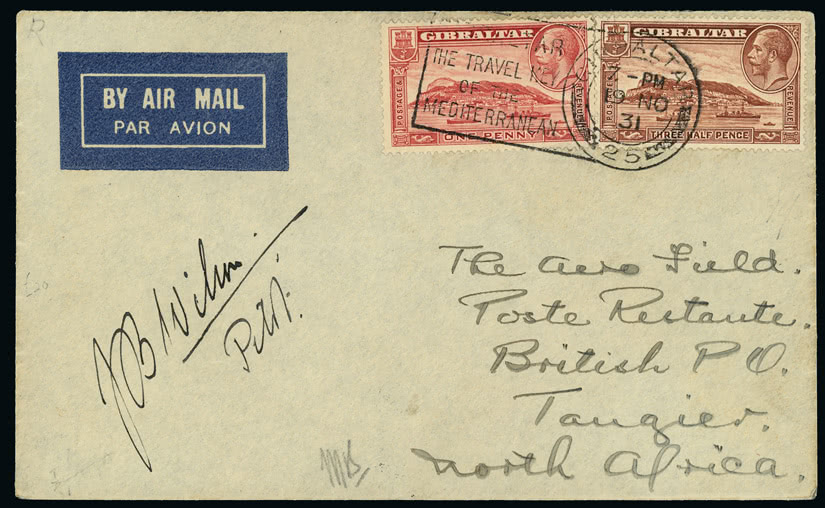 BY AIR MAIL
PAR AVION
GIBRALTAR
POSTAGE &
REVENUE
ONE PENNY
GIBRALTAR
POSTAGE &
REVENUE
THREE HALF PENCE
THE TRAVEL KEY
OF THE
MEDITERRANEAN
7 - PM
19 NO
31
25
JB Wilson
Pilot.
The Aero Field.
Poste Restante.
British P.O.
Tangier.
North Africa.